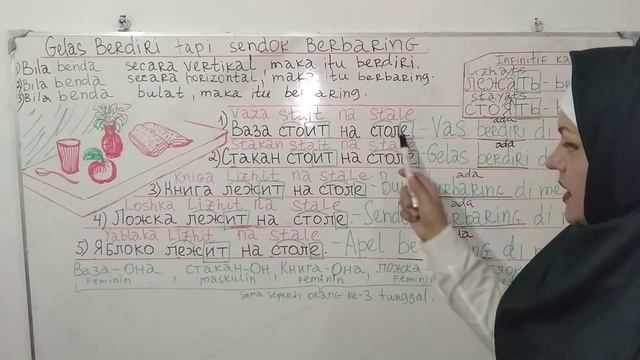 Gelas Berdiri tapi sendok Berbaring
1) Bila benda secara vertikal, maka itu berdiri.
2) Bila benda secara horizontal, maka itu berbaring.
3) Bila benda bulat, maka itu berbaring.
Infinitif
lizhats
лежать - be
stayats
стоять - be
Vaza stait na stale ada
1) Ваза стоит на столе - Vas berdiri di
Stakan stait na stale ada
2) Стакан стоит на столе - Gelas berdiri di
Kniga Lizhit na stale ada
3) Книга лежит на столе - berbaring di me
Loshka Lizhit na stale ada
4) Ложка лежит на столе - berbaring di m
Yablaka Lizhit na stale
5) Яблоко лежит на столе. - Apel di m
Ваза-она, стакан-он, Книга-Она, ложка-
Feminin maskulin feminin Feminin
sama seperti orang ke-3 tunggal.